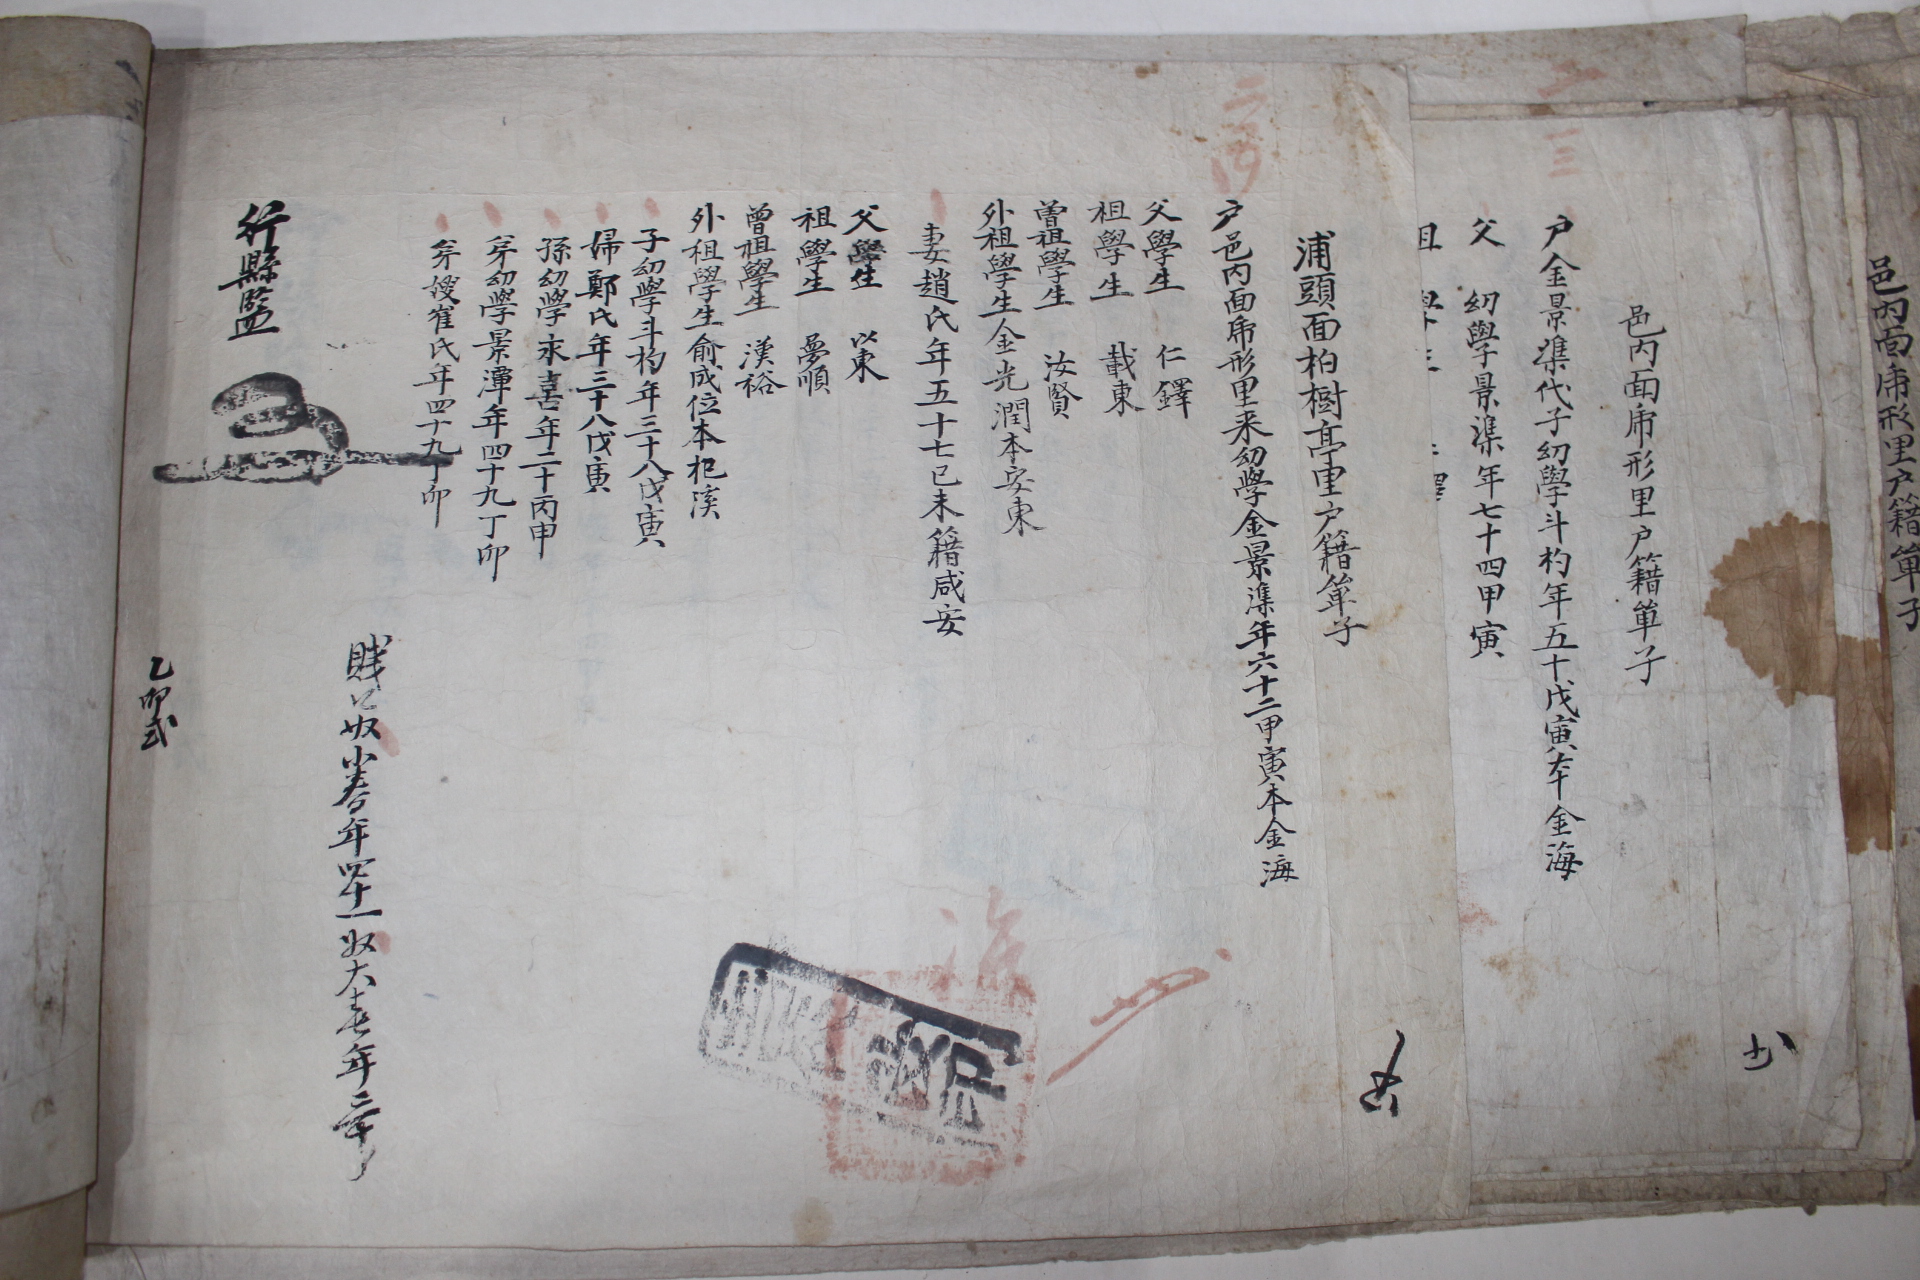 邑內面乕形里戶籍單子
邑內面乕形里戶籍單子
戶金景㵂代子幼學斗杓年五十戊寅本金海
父 幼學景㵂年七十四甲寅
祖 學生
浦頭面柏樹亭里戶籍單子
戶邑內面乕形里来幼學金景㵂年六十二甲寅本金海
父學生 仁鐸
祖學生 載東
曾祖學生 汝賢
外祖學生金光潤本安東
妻趙氏年五十七己未籍咸安
父學生 以東
祖學生 夢順
曾祖學生 漢裕
外祖學生俞成位本杞溪
子幼學斗杓年三十八戊寅
婦鄭氏年三十八戊寅
孫幼學永喜年二十丙申
弟幼學景潭年四十九丁卯
弟嫂崔氏年四十九丁卯
賤口奴小春年四十一奴大春年
行縣監
乙卯式